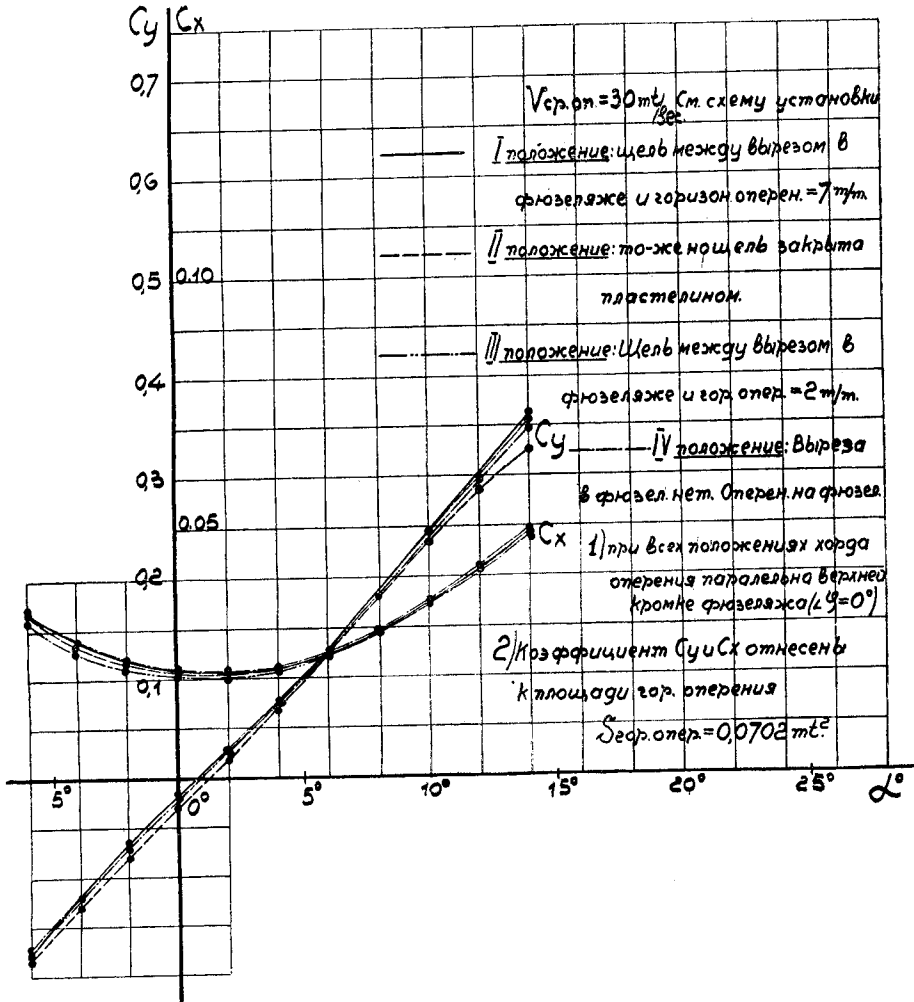 Cy Cx
0,7
Vср.оп.=30 mt/sec. См. схему установки
I положение: щель между вырезом в
0,6
фюзеляже и горизон. оперен.=7 m/m.
II положение: то-же но щель закрыта
0,5 0.10
пластелином.
III положение: Щель между вырезом в
0,4
фюзеляже и гор. опер.=2 m/m.
Cy
IV положение: Выреза
0,3
в фюзел. нет. Оперен. на фюзел.
0.05
Cx
1) при всех положениях хорда
0,2
оперения паралельна верхней
кромке фюзеляжа (∠φ=0°)
2) Коэффициент Cy и Cx отнесены
0,1
к площади гор. оперения
Sгор.опер.=0,0702 mt².
5° 0° 5° 10° 15° 20° 25° α°